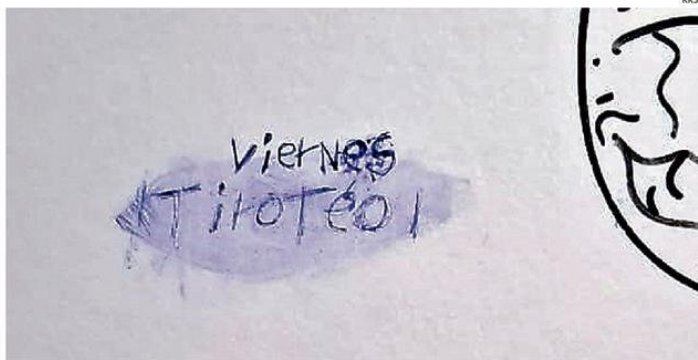 viernes
Tiroteo!